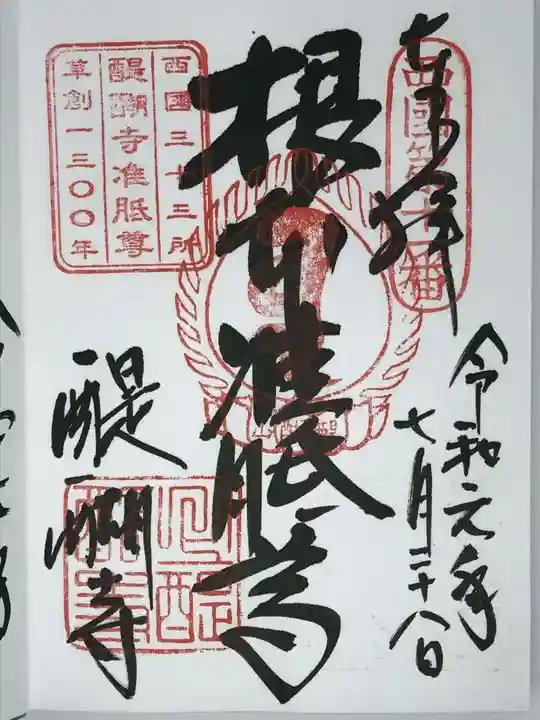 奉拝
西國第十一番
令和元年
七月二十八日
根本准胝尊
西國三十三所
醍醐寺准胝尊
草創一三〇〇年
醍醐寺